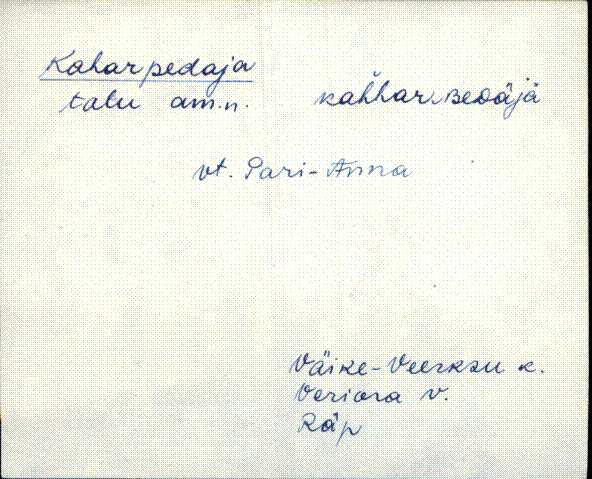 Kaharpedaja
talu am.n. kahhar.Bedäjä
vt. Pari-Anna
Väike-Veerksu k.
Veriora v.
Räp